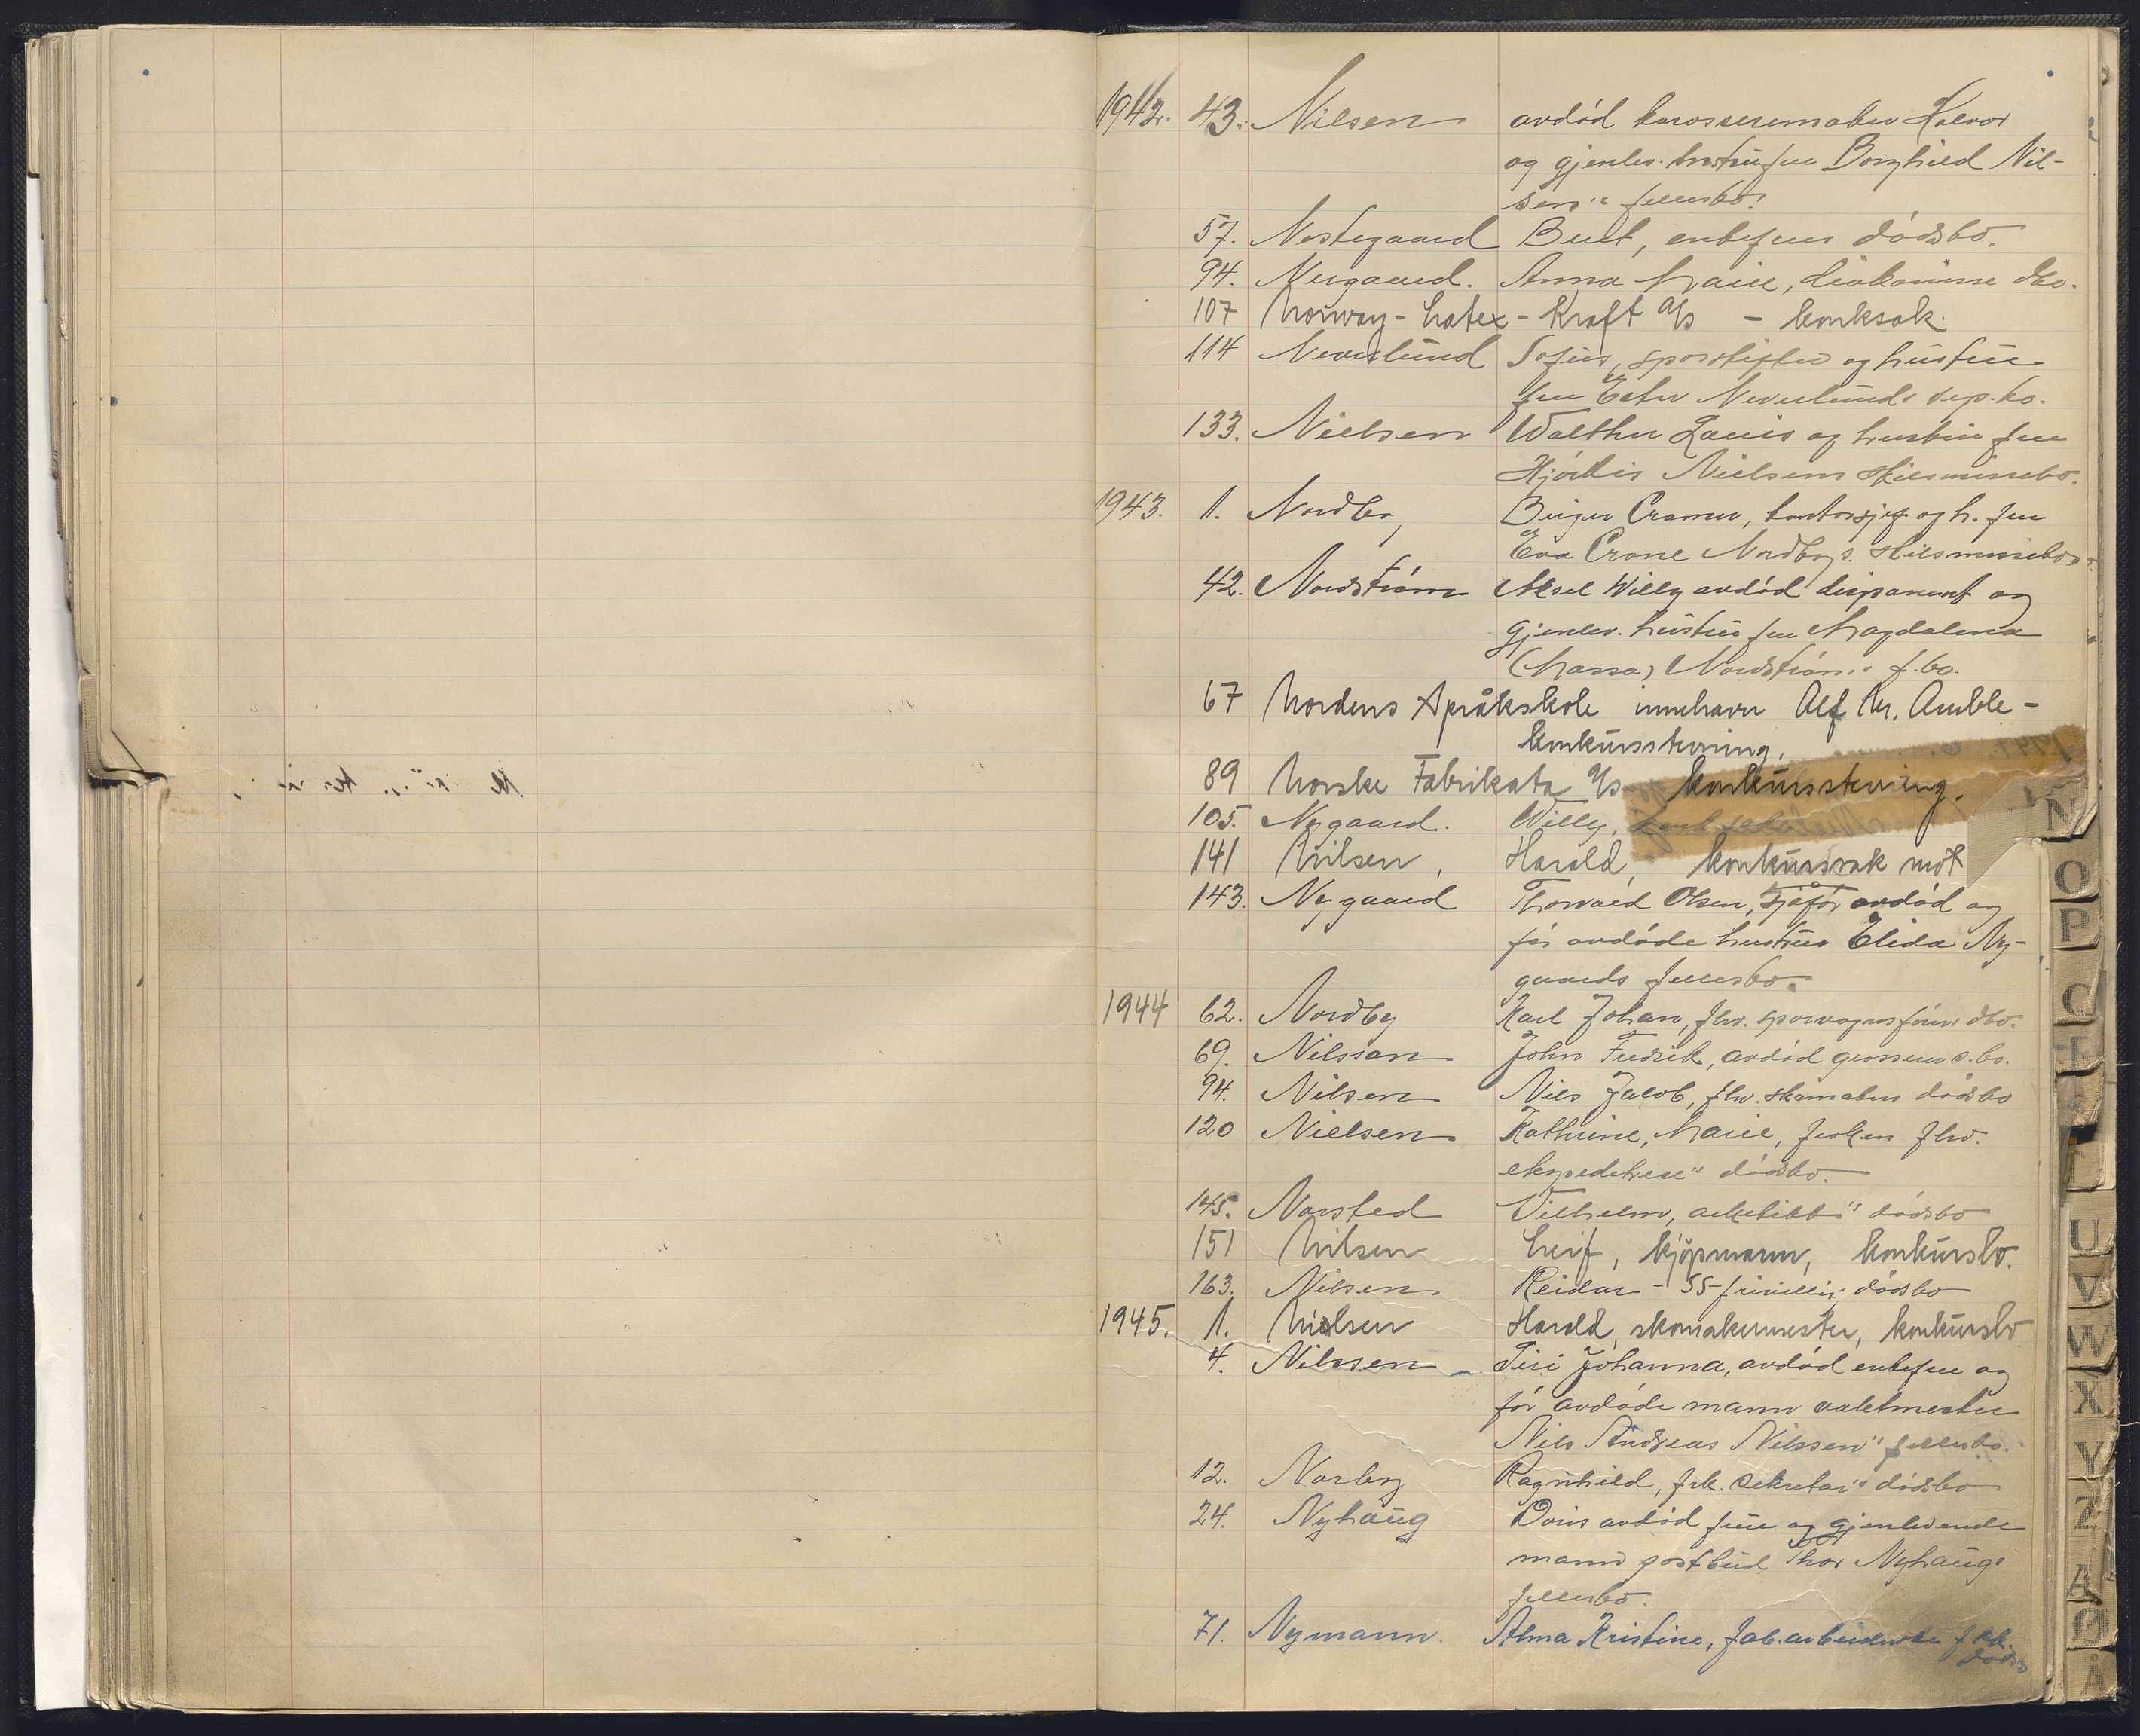 1942. 43. Nilsen avdød karosserimaker Halvor
og gjenlev. hustru fru Borghild Nil-
sen's fellesbo.
57. Nestegaard Berit, enkefrues dødsbo.
94. Nergaard. Anna Marie, diakonisse dbo.
107 Norway-Latex-Kraft A/S - konksak.
114 Neverlund Sofus, sporskifter og hustru
fru Ester Neverlunds sep.bo.
133. Nielsen Walther Louis og hustru fru
Hjørdis Nielsens skilsmissebo.
1943. 1. Nordby, Birger Cramer, kontorsjef og h. fru
Eva Crane Nordbys. skilsmissebo.
42. Nordstrøm Aksel Willy avdød disponent og
gjenlev. hustru fru Magdalena
(Massa) Nordstrøms f.bo.
67 Nordens Språkskole innehaver Alf Kr. Amble -
konkursstevning.
89 Norske Fabrikata A/S konkursstevning.
105. Nygaard. Willy,
141 Nilsen, Harald, konkurssak mot
143. Nygaard Thorvald Olsen, sjåfør avdød og
før avdøde hustru Elida Ny-
gaards fellesbo.
1944 62. Nordby Karl Johan, fhv. sporvognsfører dbo.
69. Nilsson John Fredrik, avdød grosserer s.bo.
94. Nilsen Nils Jakob, fhv. skomakers dødsbo
120 Nielsen Kathrine, Marie, frøken fhv.
ekspeditrise's dødsbo.
145. Norsted Vilhelm, arkitekt's dødsbo
151 Nilsen Leif, kjøpmann, konkursbo.
163. Nilsen Reidar - SS-frivillig dødsbo
1945. 1. Nielsen Harald, skomakermester, konkursbo
4. Nilssen Siri Johanna, avdød enkefru og
før avdøde mann vaktmester
Nils Andreas Nilssen's fellesbo.
12. Norby Ragnhild, frk. sekretær's dødsbo
24. Nyhaug Doris avdød frue og gjenlevende
mann postbud Thor Nyhaugs
fellesbo.
71. Nymann. Alma Kristine, fab.arbeiderske frk.
dødsbo
N
O
P
U
V
W
X
Y
Z
Æ
Ø
Å